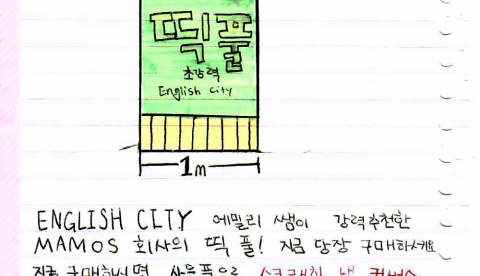 떡풀
초강력
English city
1m
ENGLISH CITY 에밀리 쌤이 강력추천한
MAMOS 회사의 떡 풀! 지금 당장 구매하세요
지금 구매하시면 사은품으로